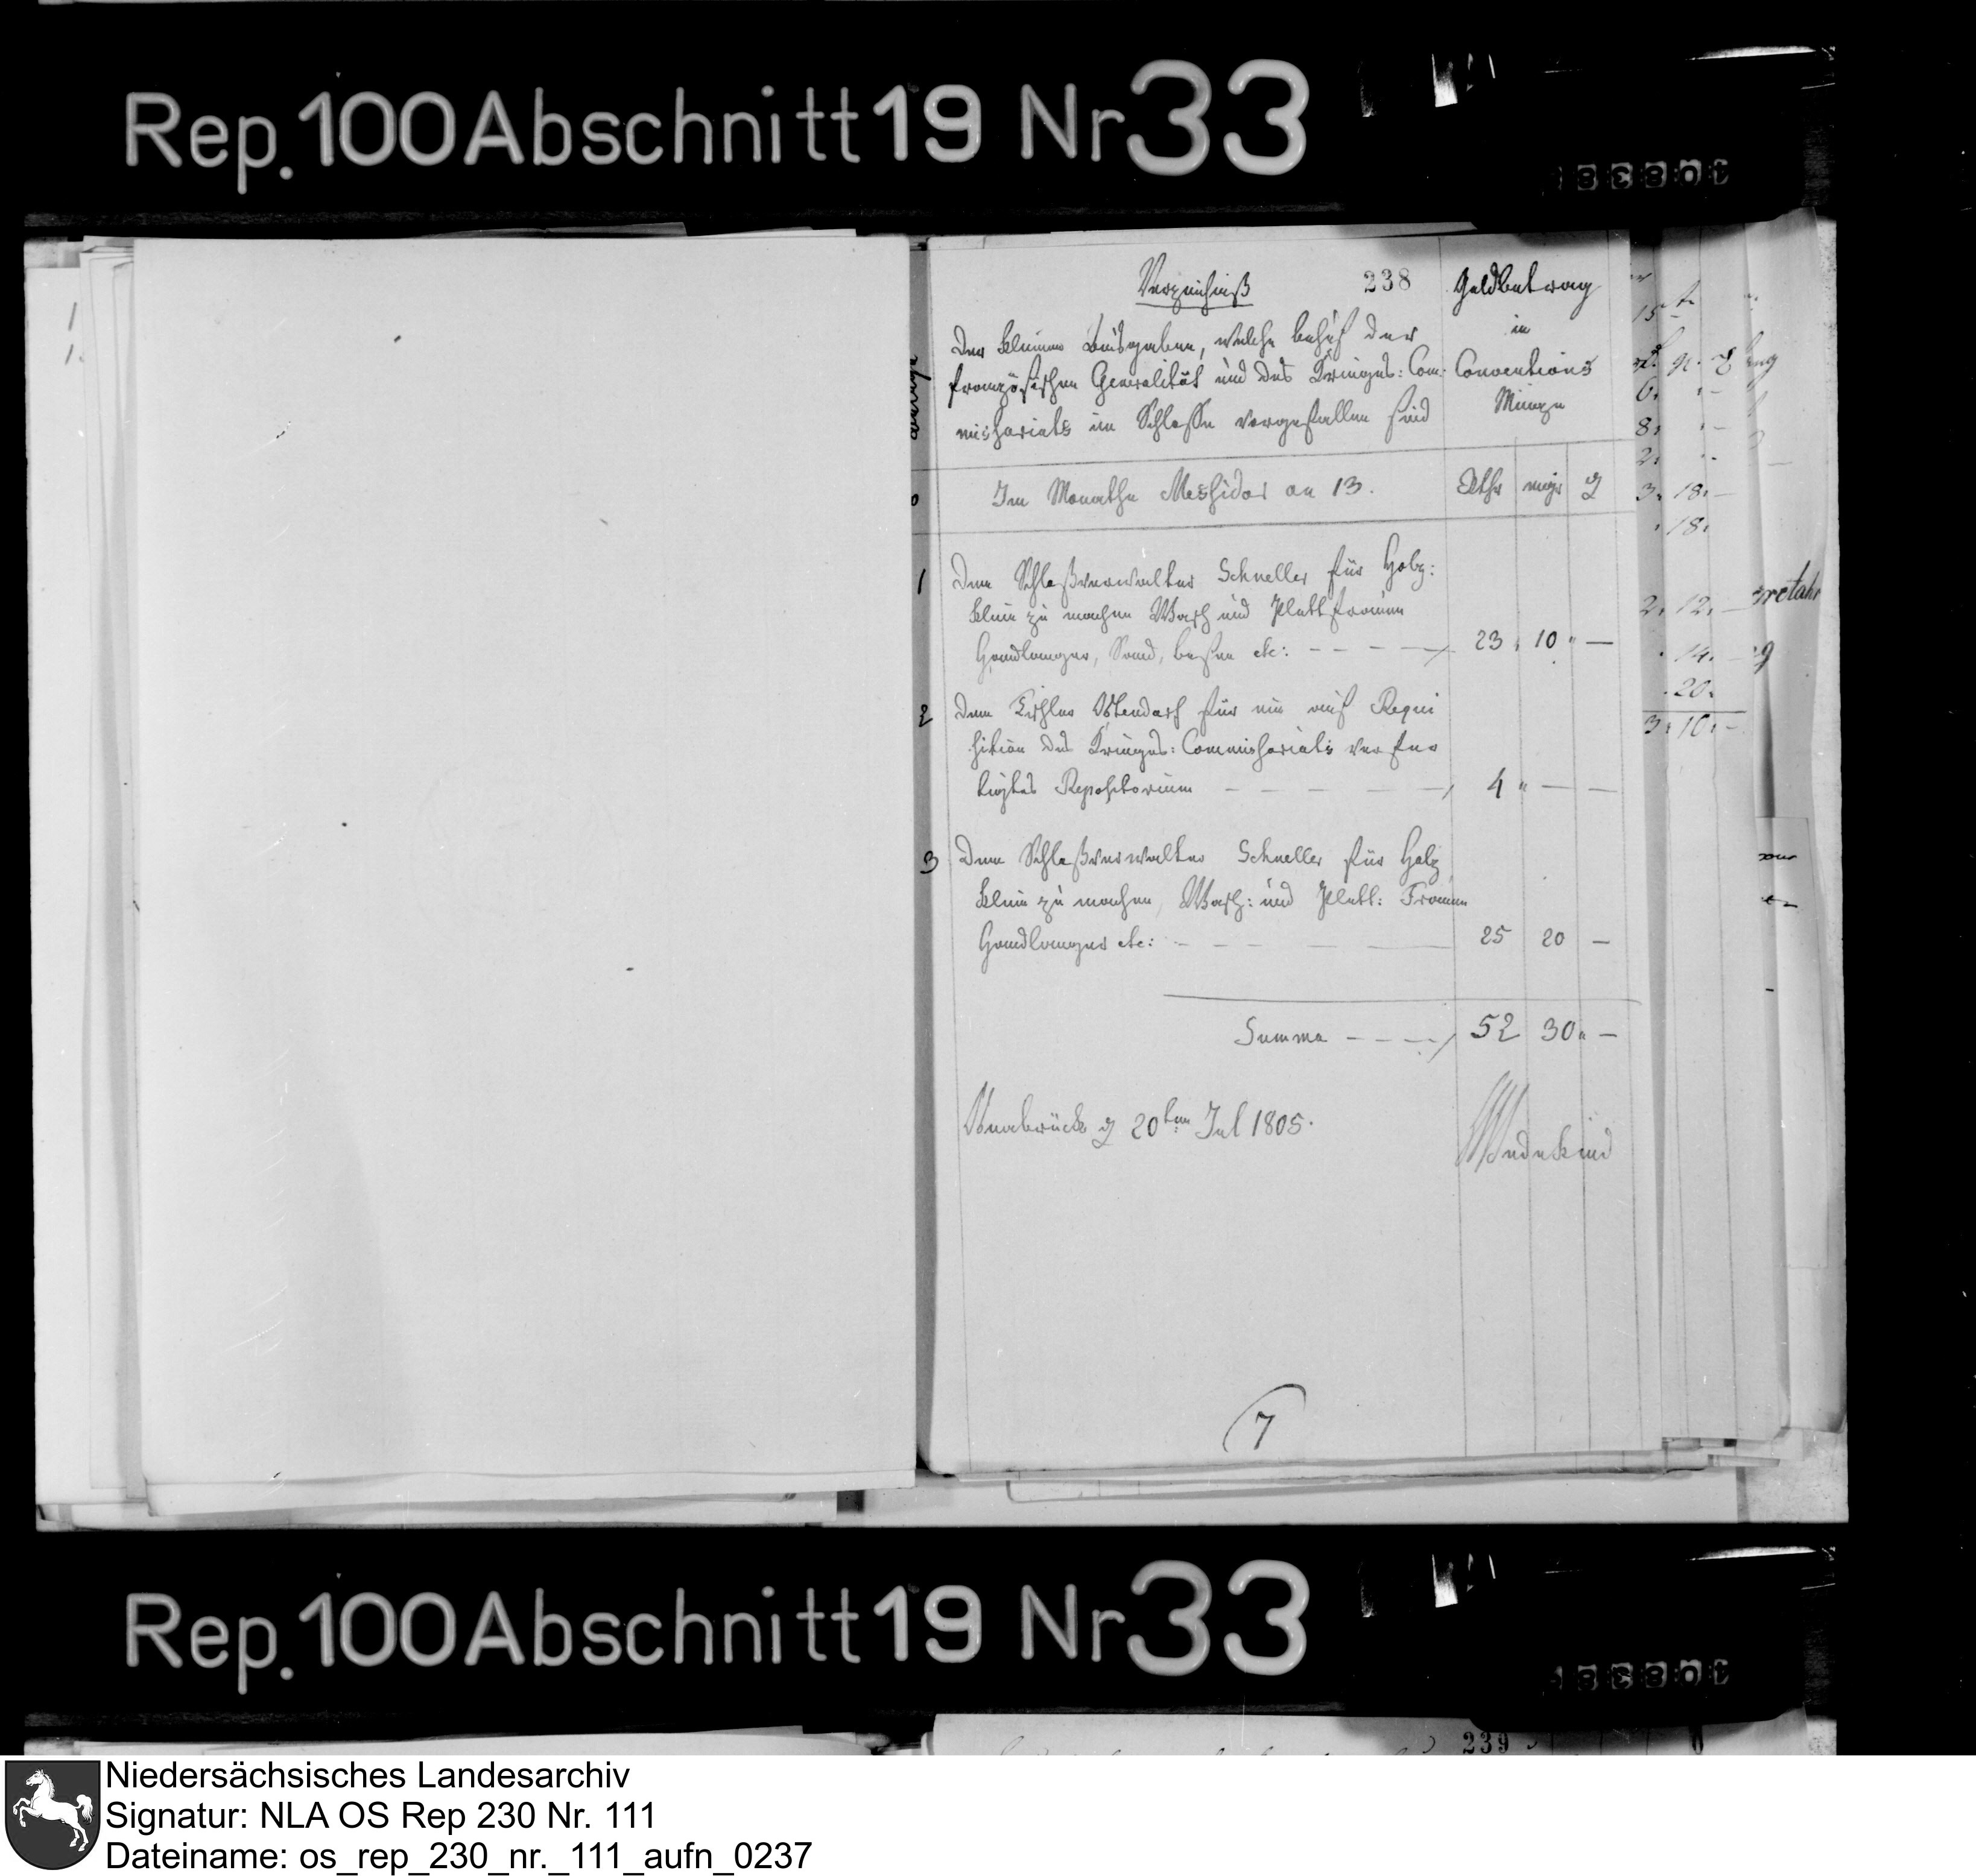 Rep. 100 Abschnitt 19 Nr 33
Verzeichniß
238
Der kleinen Ausgaben, welche behuf der
französischen Generalität und des Krieges: Com-
missariats im Schlosse vorgefallen sind
Geldbetrag
in
Conventions
Münze
Im Monathe Messidor an 13.
Rthr mgr ₰
1 Dem Schloßverwalter Schneller für Holz:
klein zu machen Wasch und Plattfrauen
Handlanger, Sand, besen etc: 23 10 —
2 Dem Tischler Ostendorf für ein auf Requi
sition des Krieges: Commissariats verfer
tigtes Repositorium 4 — —
3 Dem Schloßverwalter Schneller für Holz
klein zu machen, Wasch: und Platt: Frauen
Handlanger etc: 25 20 —
Summa 52 30 —
Osnabrück d 20ten Jul 1805.
Wedekind
7
15
6.
8.
2.
3. 18. —
18.
2. 12. —
14. —
20.
3. 10. —
Rep. 100 Abschnitt 19 Nr 33
239
Niedersächsisches Landesarchiv
Signatur: NLA OS Rep 230 Nr. 111
Dateiname: os_rep_230_nr._111_aufn_0237